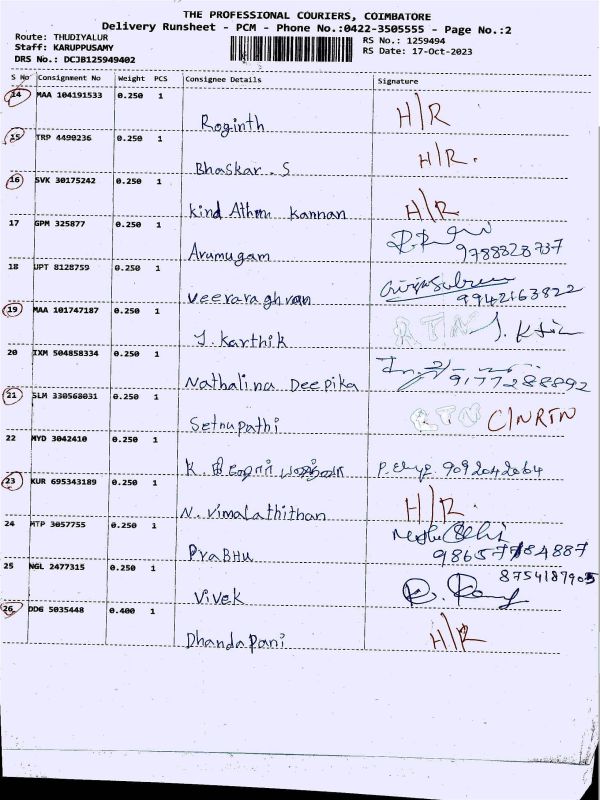 THE PROFESSIONAL COURIERS, COIMBATORE
Delivery Runsheet - PCM - Phone No.:0422-3505555 - Page No.:2
Route: THUDIYALUR
RS No.: 1259494
Staff: KARUPPUSAMY
RS Date: 17-Oct-2023
DRS No.: DCJB125949402
S No Consignment No Weight PCS Consignee Details Signature
14 MAA 104191533 0.250 1
Roginth H/R
15 TRP 4490236 0.250 1
Bhaskar. S H/R.
16 SVK 30175242 0.250 1
Kind Athm Kannan H/R
17 GPM 325877 0.250 1
Arumugam 9788828737
18 UPT 8128759 0.250 1
Veeraraghvan 9942163822
19 MAA 101747187 0.250 1
J. Karthik RTN
20 IXM 504858334 0.250 1
Nathalina Deepika 9177288892
21 SLM 330568031 0.250 1
Sethupathi RTN C/NRTN
22 MYD 3042410 0.250 1
K. 9092042064
23 KUR 695343189 0.250 1
N. Vimalathithan H/R.
24 MTP 3057755 0.250 1
Prabhu
25 NGL 2477315 0.250 1
8754187905
Vivek
26 DDG 5035448 0.400 1
Dhandapani H/R